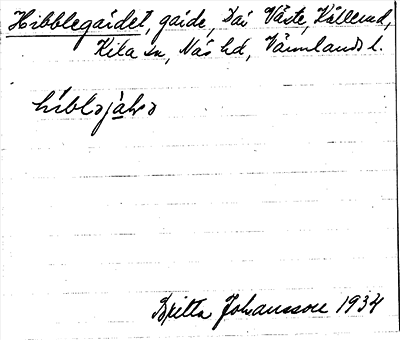 Hibblegårdet, gårde, Där Väste, Källerud,
Kila sn, Näs hd, Värmlands l.
Britta Johansson 1934